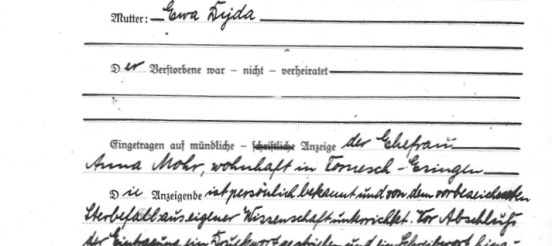 Mutter: Ewa Dyda
Der Verstorbene war – nicht – verheiratet
Eingetragen auf mündliche – schriftliche Anzeige der Ehefrau
Anna Mohr, wohnhaft in Tornesch-Esingen
Die Anzeigende ist persönlich bekannt und von dem vorbezeichneten
Sterbefall aus eigener Wissenschaft unterrichtet. Vor Abschluß
der Eintragung ein Druckwort geschrieben und ein Schreibwort hinzu-